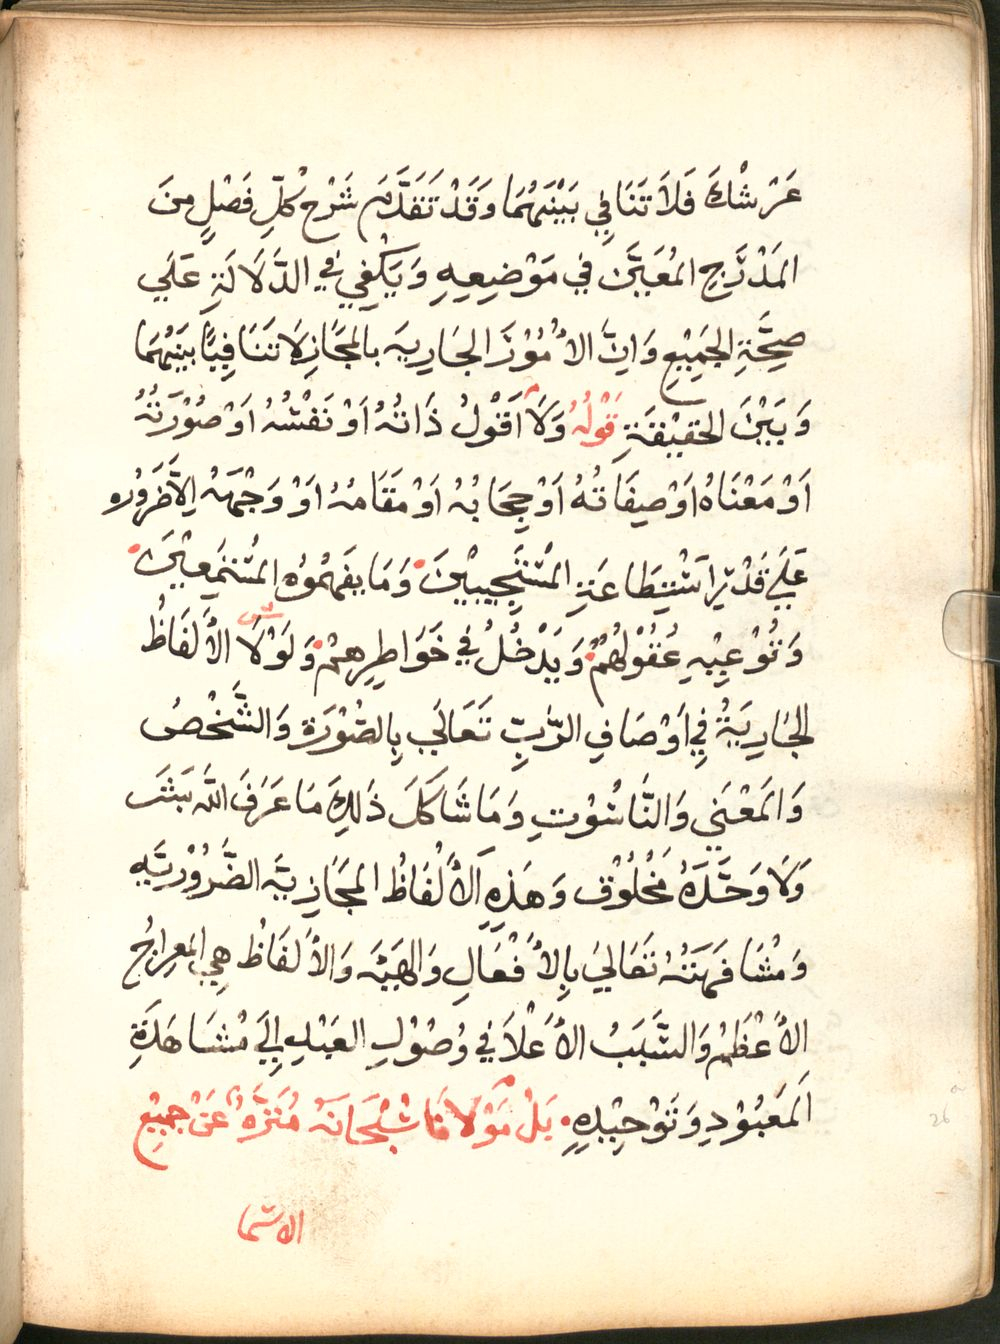 عَرْشُكَ فَلاَ تَنَافِي بَيْنَهُمَا وَقَدْ تَقَدَّمَ شَرْحُ كُلِّ فَصْلٍ مِنَ
المَدْرَجِ المُعَيَّن في مَوْضِعِهِ وَيَكْفِي فِي الدَّلاَلَةِ عَلَي
صِحَّةِ الجَمِيْعِ وَانَّ الأُمُوْرَ الجَارِيَه بالمجَازِ لاَ تَنَافِيًا بَيْنَهُمَا
وَبَيْنَ الحَقِيْقَةِ قَوْلُهُ وَلاَ اَقُوْلُ ذَاتُهُ اَوْ نَفْسُهُ اَوْ صُوْرَتُهُ
اَوْ مَعْنَاهُ اَوْ صِفَاتُهُ اَوْ حِجَابُهُ اَوْ مَقَامُهُ اَوْ وَجْهَهُ اِلاَّ ضَرُوْره
عَلَي قَدْرِ اسْتِطَاعَةِ المُسْتَجِيبِيْنَ وَمَا يَفْهَمُوْهُ المُسْتَمِعِيْنَ
وَتُوْعِيْهِ عُقُوْلُهُمْ وَيَدْخُلُ فِي خَوَاطِرِهِمْ ش وَلَوْلاَ الأَلفَاظُ
الجَارِيَةُ فِي اَوْصَافِ الرَّبِّ تَعَالَي بِالصُّوْرَة وَالشَّخْصُ
وَالمَعْنَي وَالنَّاسُوْتِ وَمَا شَاكَلَ ذَلِكَ مَا عَرَفَ اللّه بَشَر
وَلاَ وَحَّدَهُ مَخْلُوْق وَهَذِهِ الأَلْفَاظُ المَجَازِيَّه الضَّرُوْرِيَّه
وَمُشَافَهَتُهُ تَعَالَي بِالأَفْعَالِ وَالهَيْئَه وَالأَلفَاظ هِي المِعرَاجُ
الأَعْظَمُ وَالسَّبَبُ الأَعْلاَ فِي وُصُوْلِ العَبْدِ اِلَي مُشَاهَدَةِ
المَعْبُوْدِ وَتَوْحِيْدِهِ بَلْ مَوْلاَنَا سُبْحَانَهُ مُنَزَّهٌ عَنْ جَمِيْعِ
الاسْمَا
26